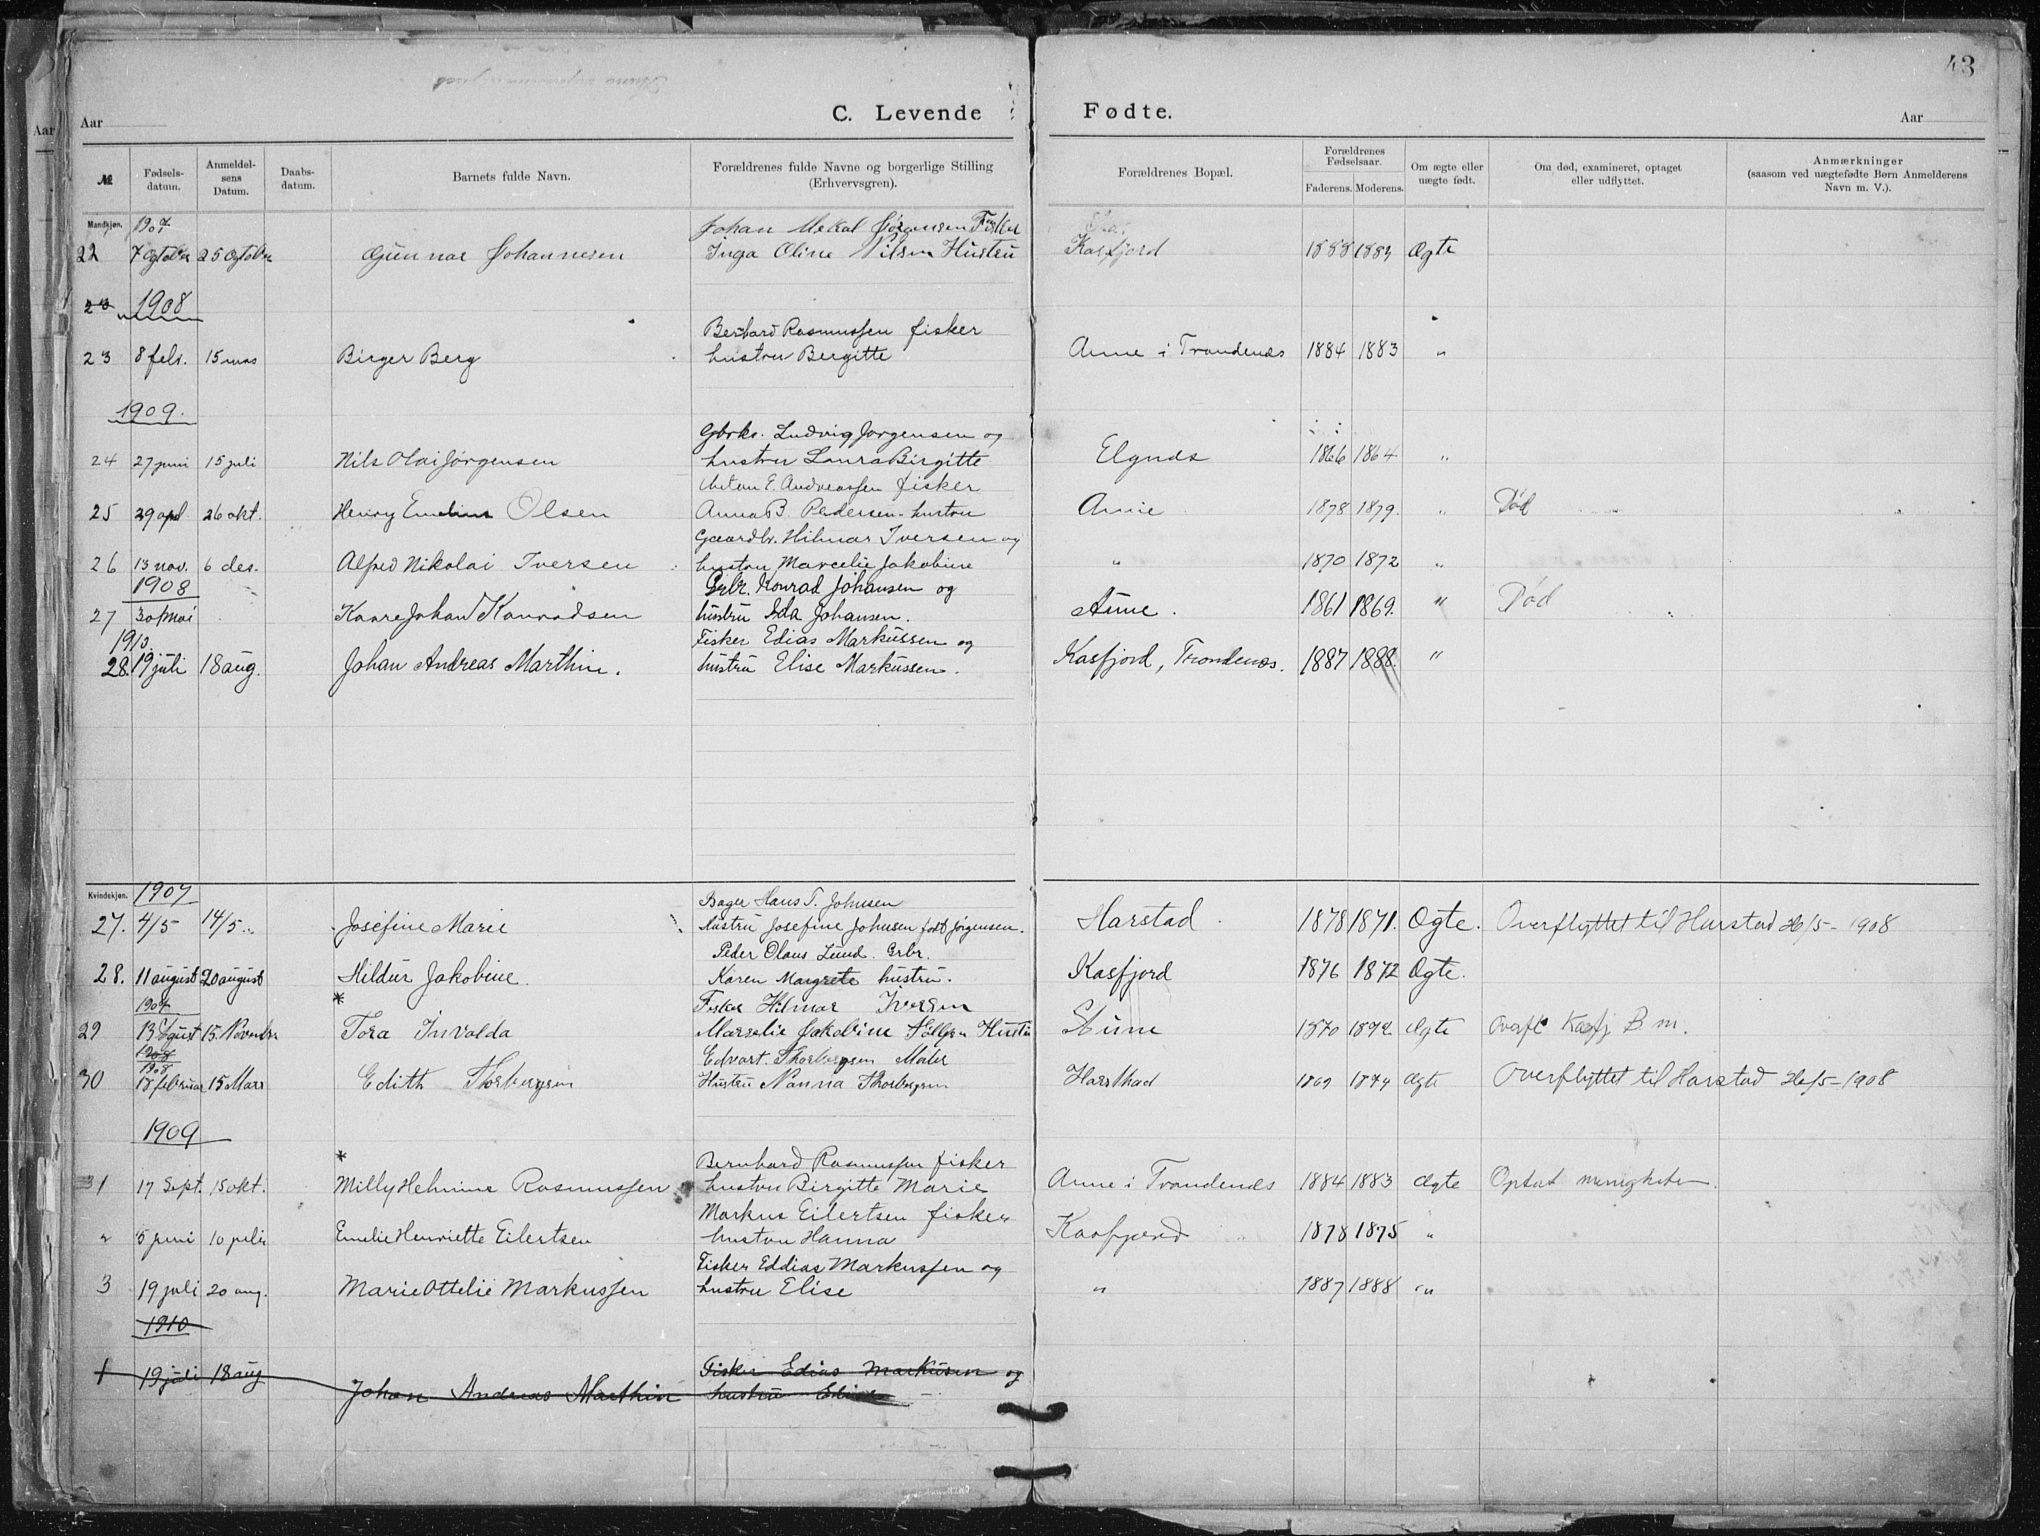 43
Aar C. Levende Fødte. Aar
№ Fødselsdatum. Anmeldelsens Datum. Daabsdatum. Barnets fulde Navn. Forældrenes fulde Navne og borgerlige Stilling (Erhvervsgren). Forældrenes Bopæl. Forældrenes Fødselsaar. Faderens. Moderens. Om ægte eller uægte født. Om død, examineret, optaget eller udflyttet. Anmærkninger (saasom ved uægtefødte Børn Anmelderens Navn m. V.).
Mandkjøn. 1907 Johan Mekal Sørensen Fisker
22 7 October 25 October Gunnar Johannesen Inga Oline Nilsen Hustru Kasfjord 1888 1883 Ægte
23 1908
Bernhard Rasmussen fisker
23 8 febr. 15 mas Birger Berg hustru Bergitte Aune i Trondenæs 1884 1883 "
1909.
Gbrks. Ludvig Jørgensen og
24 27 juni 15 juli Nils Olai Jørgensen hustru Laura Birgitte Elgnæs 1866 1864 "
Anton E. Andreassen fisker
25 29 apl 26 okt. Henry Emelius Olsen Anna B. Pedersen hustru Aune 1878 1879. " Død
Gaardbr. Hilmar Iversen og
26 13 nov. 6 des. Alfred Nikolai Iversen hustru Marcelie Jakobine " 1870 1872 "
1908 Grbr. Konrad Johansen og
27 30 Mai Kaare Johan Konradsen hustru Ida Johansen. Aune. 1861 1869. " Død
1910. Fisker Edias Markussen og
28. 19 juli 18 aug. Johan Andreas Marthin. hustru Elise Markussen. Kasfjord, Trondenæs. 1887 1888. "
Kvindekjøn. 1907 Bager Hans T. Johnsen
27. 4/5 14/5 Josefine Marie Hustru Josefine Johnsen født Jørgensen. Harstad 1878 1871. Ægte. Overflyttet til Harstad 26/5 - 1908
Peder Olaus Lund. Grbr.
28. 11 august 20 august Hildur Jakobine. Karen Margrete hustru. Kasfjord 1876 1872 Ægte.
1907 * Fisker Hilmar Iversen
29 13 August 15. November Tora Invalda Marselie Jakobine Hustru Aune 1870 1872 Ægte Overfl. Kasfj B m.
1908
1908 Edvart. Thorbergsen Maler
30 18 februar 15 Mars Edith Thorbergsen Hustru Nanna Thorbergsen Harsthad 1869 1874 Ægte Overflyttet til Harstad 26/5 - 1908
1909
* Bernhard Rasmussen fisker
31 17 Sept. 15 okt. Milly Helmine Rasmussen hustru Birgitte Marie Aune i Trondenæs 1884 1883 Ægte Optat menigheten.
Markus Eilertsen fisker
2 5 juni 10 julie Emelie Henriette Eilertsen hustru Hanna Kasfjord 1878 1875 "
Fisker Eddias Markussen og
3 19 juli 20 aug. Marie Ottelie Markussen hustru Elise " 1887 1888 "
1910
Fisker Edias Markusen og
1 19 juli 18 aug Johan Andreas Marthin hustru